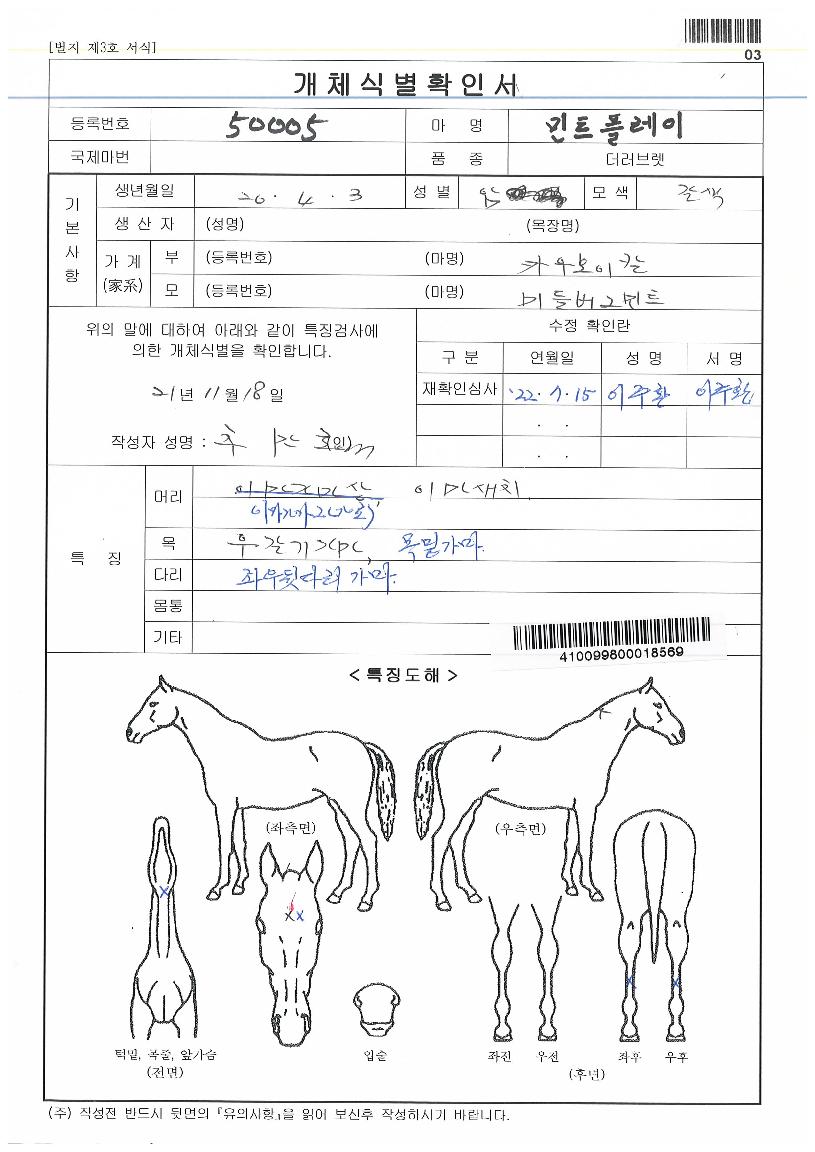 [별지 제3호 서식]
03
개체식별확인서
등록번호 50005 마 명 민트플레이
국제마번 품 종 더러브렛
기본사항
생년월일 20. 4. 3 성별 암 모색 갈색
생산자 (성명) (목장명)
가계(家系) 부 (등록번호) (마명) 카우보이칼
모 (등록번호) (마명) 미들버그민트
위의 말에 대하여 아래와 같이 특징검사에
의한 개체식별을 확인합니다.
21년 11월 18일
작성자 성명 : (인)
수정 확인란
구분 연월일 성명 서명
재확인심사 '22. 7. 15 이주환 이주환
. .
. .
특 징
머리
목 목밑가마.
다리 좌우뒷다리 가마.
몸통
기타
410099800018569
< 특징도해 >
(좌측면) (우측면)
턱밑, 목줄, 앞가슴
(전면)
입술
좌전 우전 좌후 우후
(후면)
(주) 작성전 반드시 뒷면의 『유의사항』을 읽어 보신후 작성하시기 바랍니다.